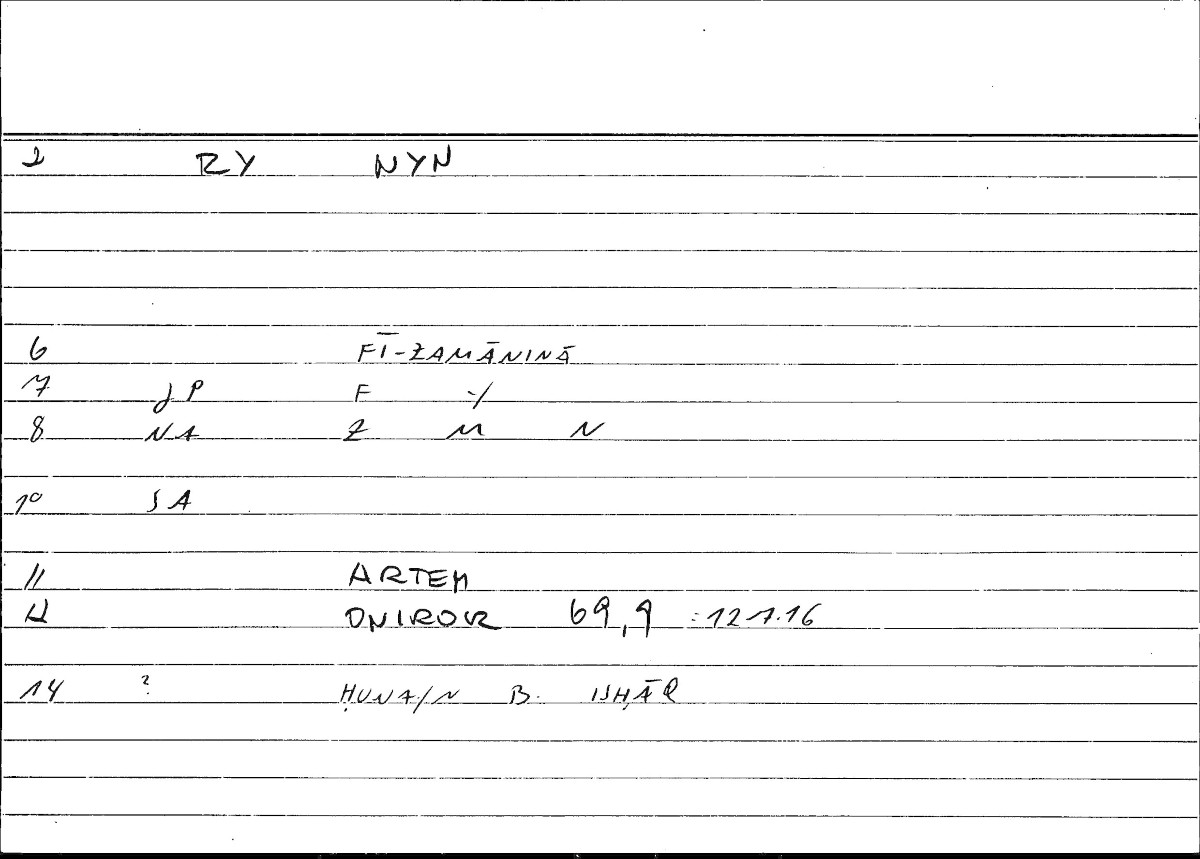 2 RY NYN
6 FĪ-ZAMĀNINĀ
7 JP F Y
8 NA Z M N
10 SA
11 ARTEM
12 ONIROK 69,9 :127.16
14 ? ḤUNAIN B. ISḤĀQ